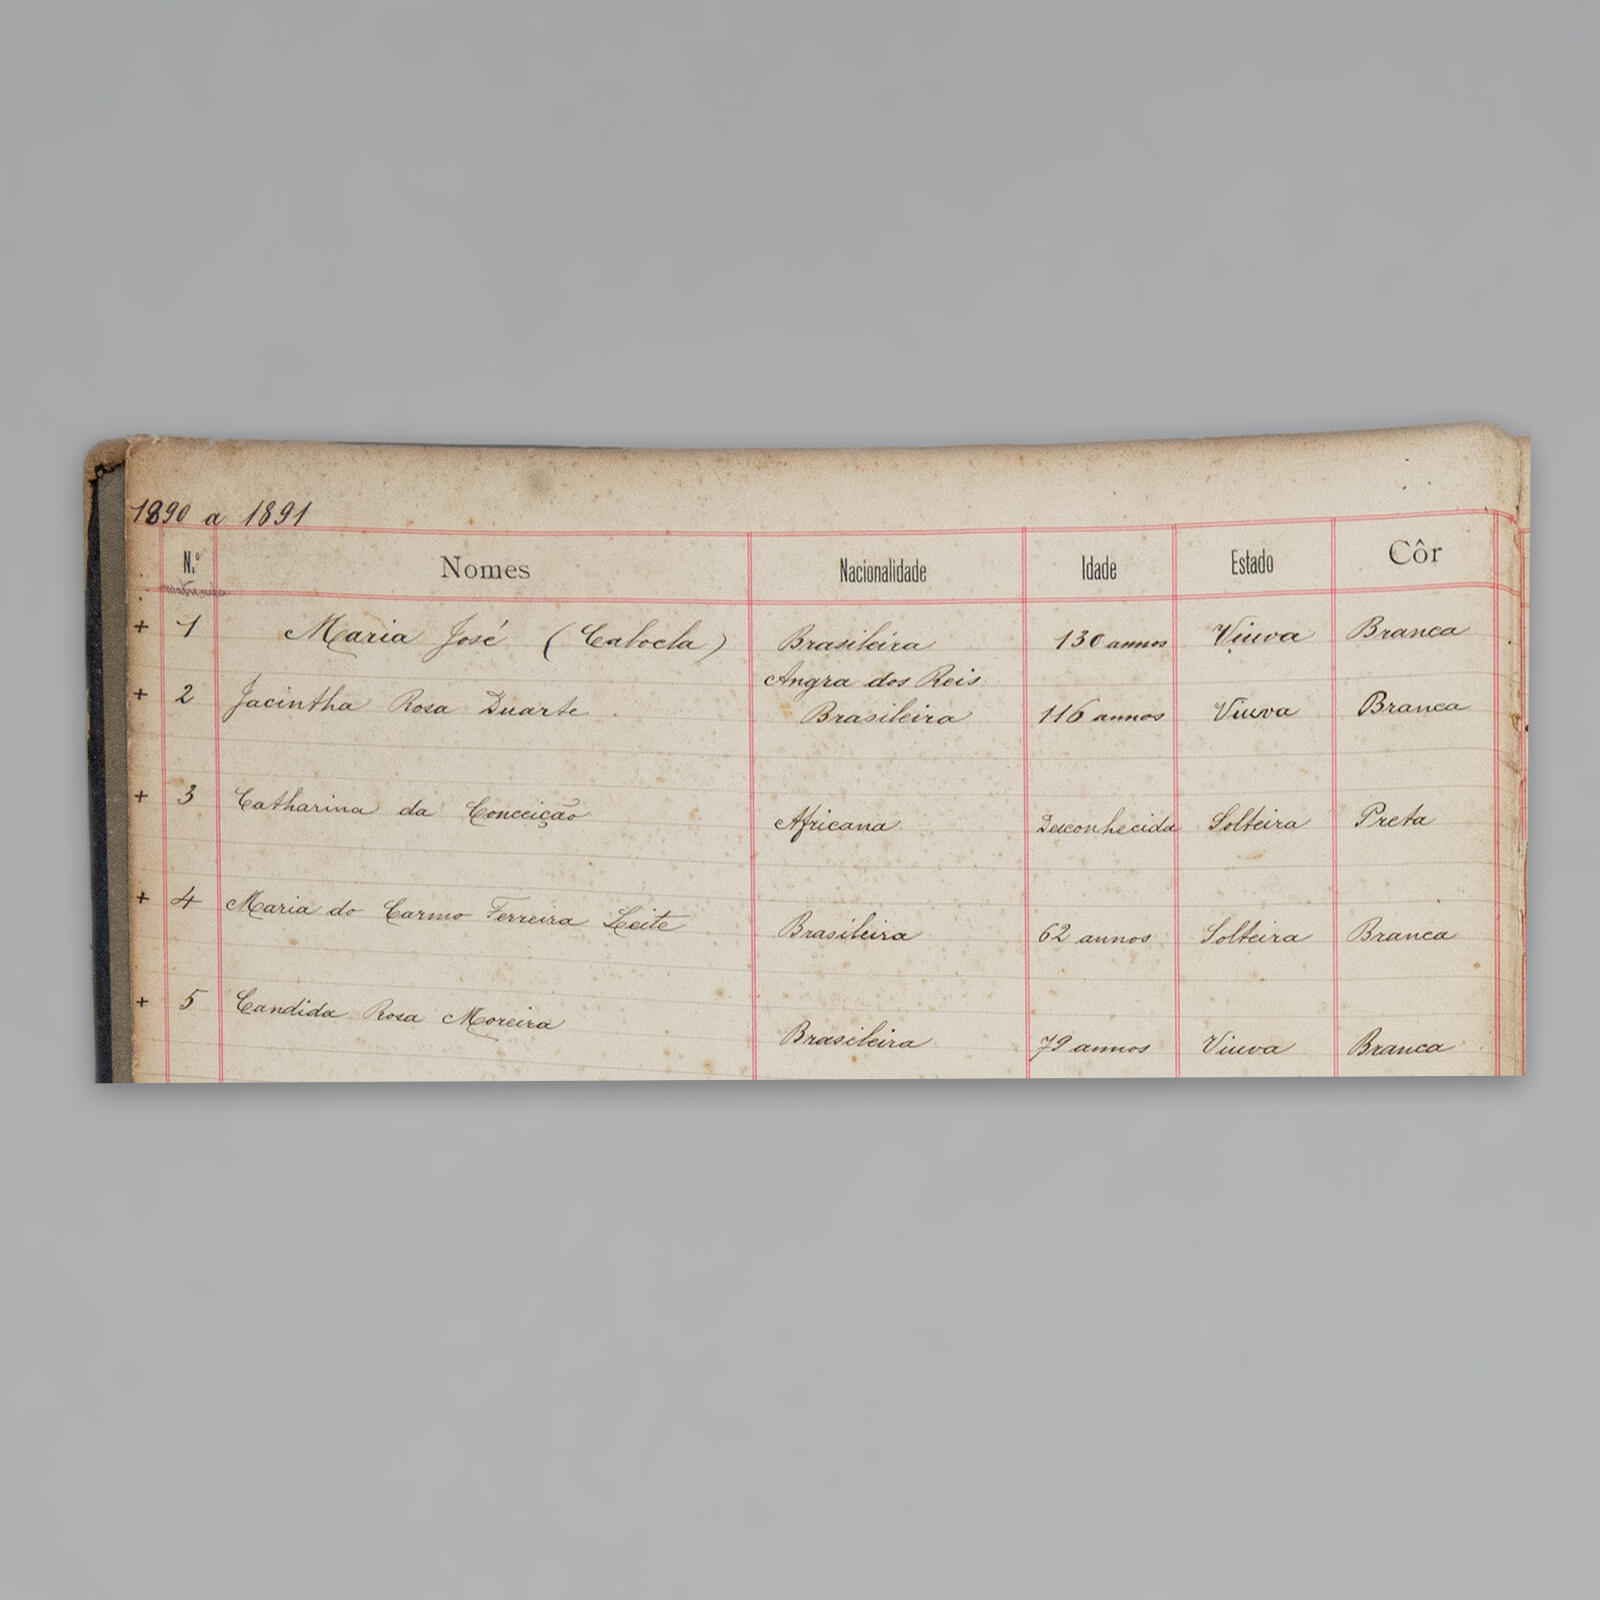 1890 a 1891
N.º Nomes Nacionalidade Idade Estado Côr
matricula
+ 1 Maria José (Cabocla) Brasileira 130 annos Viuva Branca
Angra dos Reis
+ 2 Jacintha Rosa Duarte Brasileira 116 annos Viuva Branca
+ 3 Catharina da Conceição Africana Desconhecida Solteira Preta
+ 4 Maria do Carmo Ferreira Leite Brasileira 62 annos Solteira Branca
+ 5 Candida Rosa Moreira Brasileira 79 annos Viuva Branca